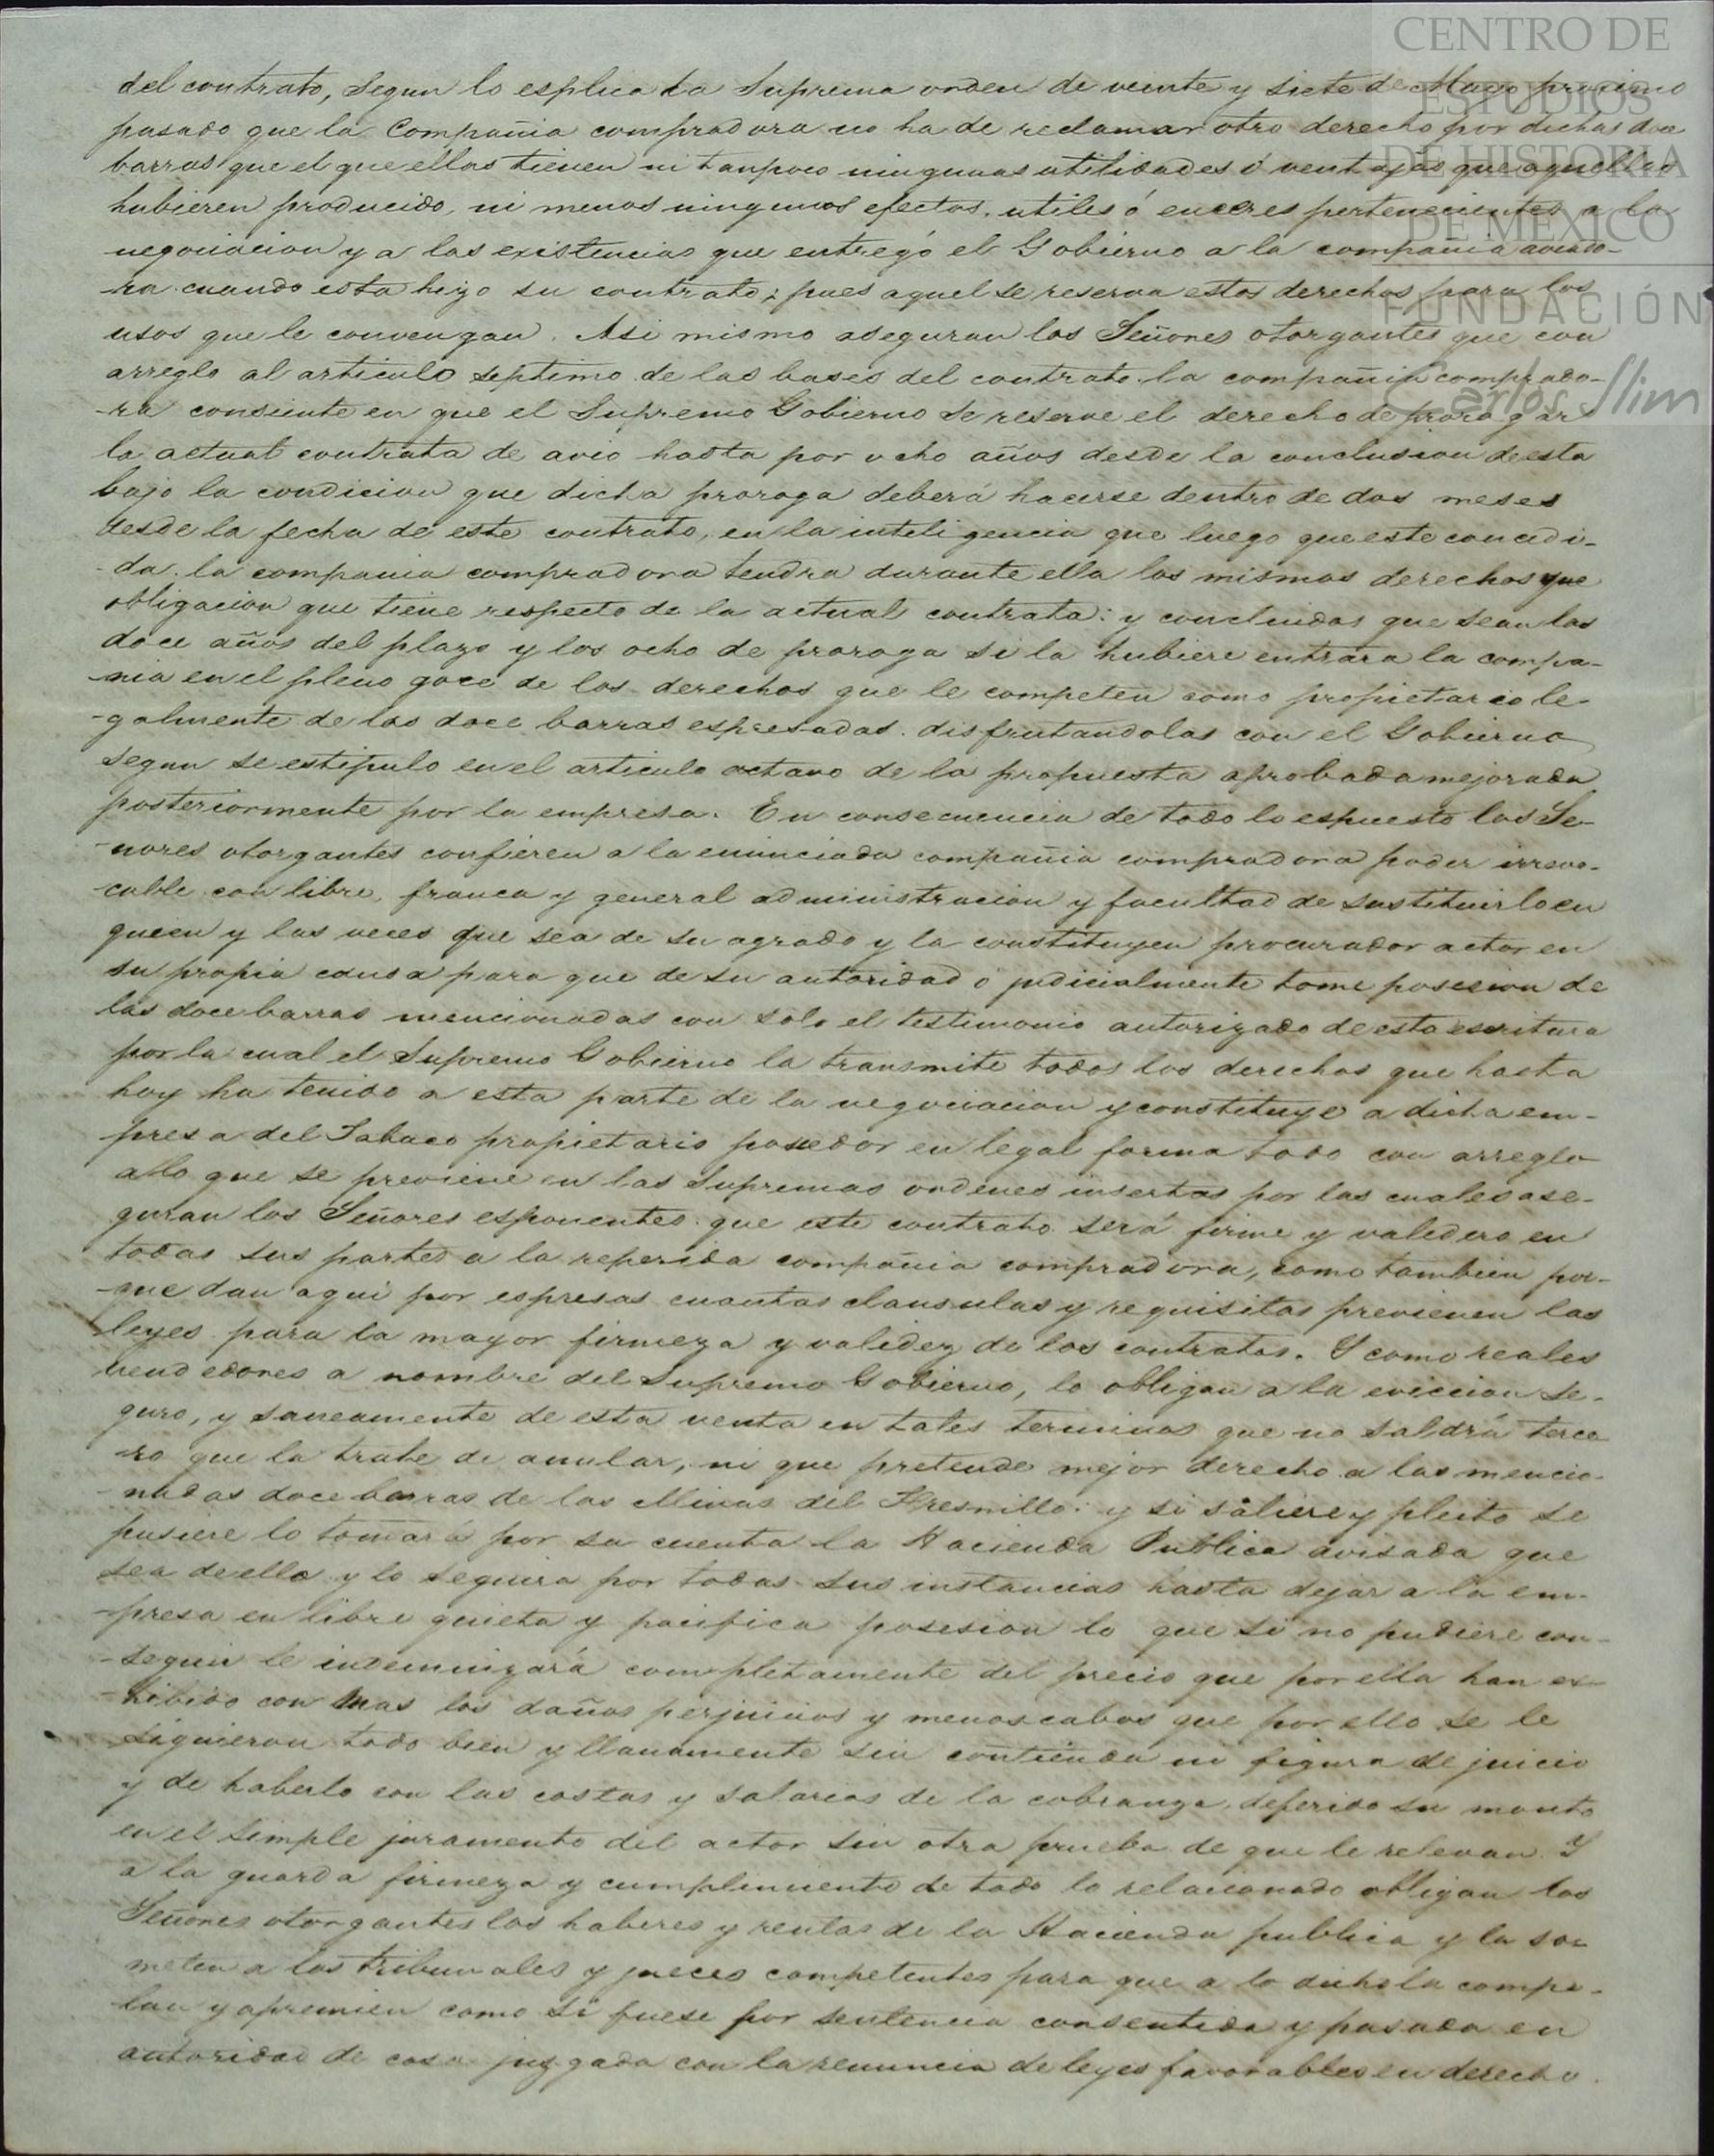 CENTRO DE
ESTUDIOS
DE HISTORIA
DE MÉXICO
FUNDACIÓN
Carlos Slim
del contrato, segun lo esplica la Suprema orden de veinte y siete de Mayo procsimo
pasado que la Compañia compradora no ha de reclamar otro derecho por dichas doce
barras que el que ellas tienen ni tanpoco ningunas utilidades ó ventajas que aquellas
hubieren producido, ni menos ningunos efectos, utiles ó enceres pertenecientes a la
negociacion y a las existencias que entregó el Gobierno a la compañia aviado-
-ra cuando esta hizo su contrato; pues aquel se reserva estos derechos para los
usos que le convengan. Asi mismo aseguran los Señores otorgantes que con
arreglo al articulo septimo de las bases del contrato la compañia comprado-
-ra consiente en que el Supremo Gobierno se reserve el derecho de prorogar
la actual contrata de avio hasta por ocho años desde la conclusion de esta
bajo la condicion que dicha proroga deberá hacerse dentro de dos meses
desde la fecha de este contrato, en la inteligencia que luego que este concedi-
-da la compania compradora tendra durante ella los mismos derechos que
obligacion que tiene respecto de la actual contrata: y concluidos que sean los
doce años del plazo y los ocho de proroga si la hubiere entrara la compa-
-nia en el pleno goce de los derechos que le competen como propietario le-
-galmente de las doce barras espresadas disfrutandolas con el Gobierno
segun se estipulo en el articulo octavo de la propuesta aprobada mejorada
posteriormente por la empresa. En consecuencia de todo lo espuesto los Se-
-nores otorgantes confieren a la enunciada compañia compradora poder irrevo-
-cable con libre, franca y general administracion y facultad de sustituirlo en
quien y las veces que sea de su agrado y la constituyen procurador actor en
su propia causa para que de su autoridad ó judicialmente tome posesion de
las doce barras mencionadas con solo el testimonio autorizado de esta escritura
por la cual el Supremo Gobierno la transmite todos los derechos que hasta
hoy ha tenido a esta parte de la negociacion y constituye a dicha em-
-presa del Tabaco propietario poseedor en legal forma todo con arreglo
a lo que se previene en las Supremas ordenes insertas por las cuales ase-
guran los Señores esponentes que este contrato será firme y valedero en
todas sus partes a la referida compañia compradora, como tambien por-
-que dan aqui por espresas cuantas clausulas y requisitos previenen las
leyes para la mayor firmeza y validez de los contratos. Y como reales
vendedores a nombre del Supremo Gobierno, lo obligan a la eviccion se-
guro, y saneamente de esta venta en tales terminos que no saldrá terce
-ro que la trate de anular, ni que pretende mejor derecho a las mencio-
-nadas doce barras de las Minas del Fresnillo: y si saliere y pleito se
pusiere lo tomará por su cuenta la Hacienda Publica avisada que
sea de ello y lo seguira por todas sus instancias hasta dejar a la em-
-presa en libre quieta y pacifica posesion lo que si no pudiere con-
-seguir le indemnizará completamente del precio que por ella han ex-
-hibido con mas los daños perjuicios y menoscabos que por ello se le
siguieron todo bien y llanamente sin contienda ni figura de juicio
y de haberlo con las costas y salarios de la cobranza, deferido su monto
en el simple juramento del actor sin otra prueba de que le relevan. Y
a la guarda firmeza y cumplimiento de todo lo relacionado obligan los
Señores otorgantes los haberes y rentas de la Hacienda publica y la so-
meten a los tribunales y jueces competentes para que a lo dicho la compe-
lan y apremien como si fuese por sentencia consentida y pasada en
autoridad de cosa juzgada con la renuncia de leyes favorables en derecho.